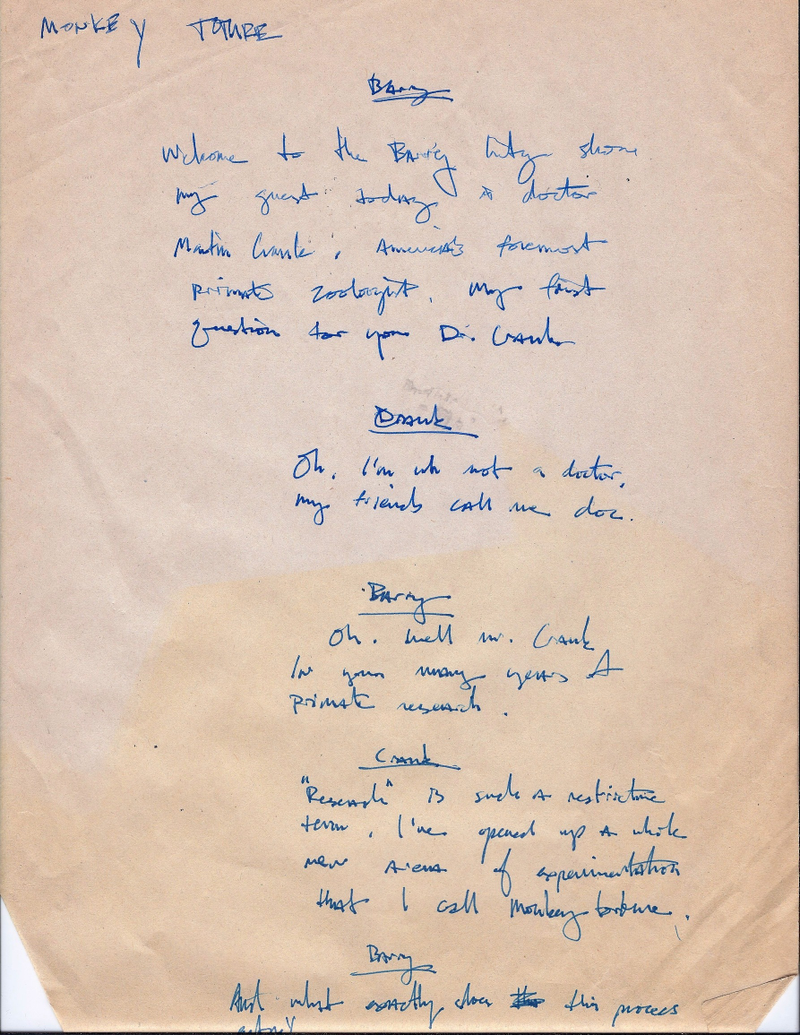 MONKEY TOTURE
Barry
Welcome to the Barry show
my guest today is doctor
Martin Crank, America's foremost
primate zoologist. My first
question for you Dr. Crank
Crank
Oh, I'm uh not a doctor,
my friends call me doc.
Barry
Oh. Well mr. Crank
In your many years of
primate research.
Crank
"Research" is such a restrictive
term, I've opened up a whole
new arena of experimentation
that I call Monkey torture.
Barry
And what exactly does this process